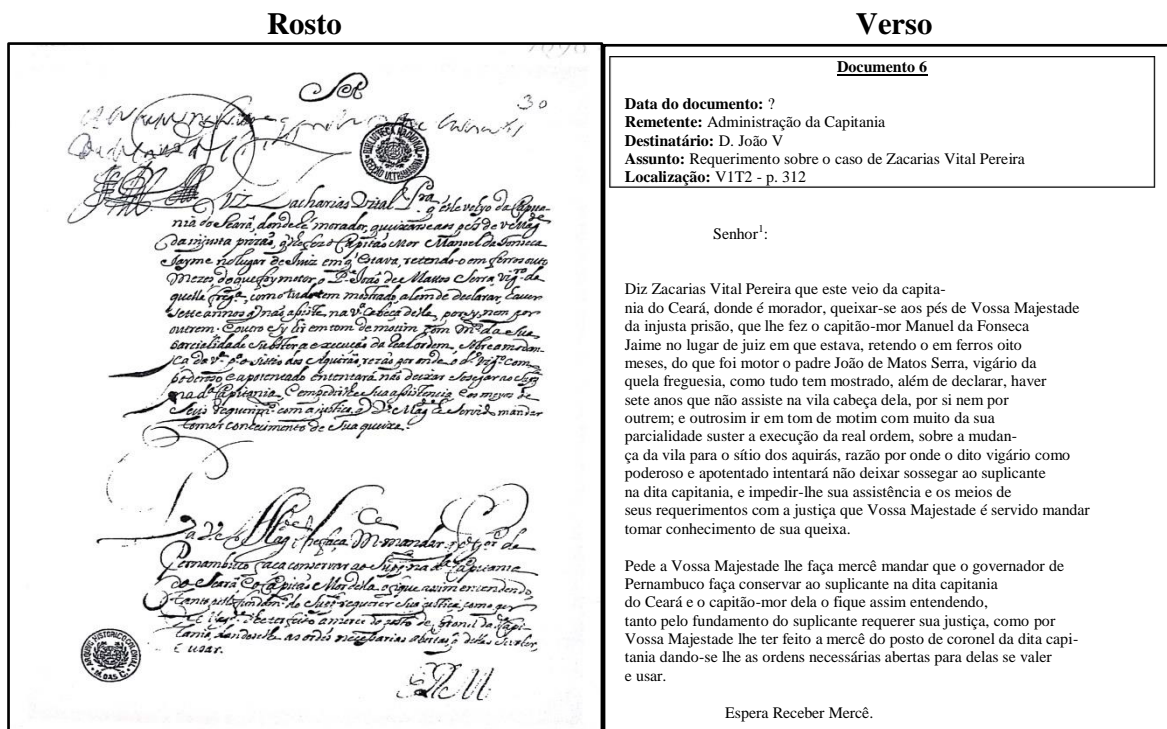 Rosto
Verso
Snor
30
Diz Zacharias Vital Pra q̃ este veyo da Capita-
nia do Seará, donde é morador, queixarse aos pés de V Mag.de
da injusta prizaõ, q̃ lhe fez o Capitaõ Mor Manoel da Fonseca
Jayme no lugar de Juiz em q̃ estava, retendo-o em ferros outo
mezes, do que foy motor o P.e Joaõ de Mattos Serra, vig.ro da
quella freg.a, como tudo tem mostrado, alem de declarar, haver
sette annos q̃ naõ asiste na V.a Cabeça della, por sy, nem por
outrem. E outro sy hir em tom de motim com m.to da sua
parcialidade suster a execuçaõ da real ordem, sobre a mudan-
ça da V.a p.a o Sitio dos Aquirás, rezaõ por onde o d.o Vig.ro com
poderoso e apotentado intentará naõ deixar sosegar ao Sup.e
na d.a Capitania, e impedirlhe sua asistencia e os meyos de
seus requerim.tos com a justiça q̃ V. Mag.de é servido mandar
tomar conhecimento de sua queixa.
P a V. Mag.de lhe faça M. mandar q̃ o g.or de
Pernambuco faça conservar ao Sup.e na d.a Capitania
do Seará e o Capitaõ Mor della o fique assim entendendo,
tanto pello fundam.to do Sup.e requerer sua justiça, como por
V. Mag.de lhe ter feito a merce do posto de Coronel da d.a Capi-
tania, dandoselhe as ordẽs necessarias abertas, p.a dellas se valer,
e usar.
E R M
BIBLIOTECA NACIONAL
SECÇÃO ULTRAMARINA
ARQUIVO HISTORICO COLONIAL
M. DAS C.
Documento 6
Data do documento: ?
Remetente: Administração da Capitania
Destinatário: D. João V
Assunto: Requerimento sobre o caso de Zacarias Vital Pereira
Localização: V1T2 - p. 312
Senhor¹:
Diz Zacarias Vital Pereira que este veio da capita-
nia do Ceará, donde é morador, queixar-se aos pés de Vossa Majestade
da injusta prisão, que lhe fez o capitão-mor Manuel da Fonseca
Jaime no lugar de juiz em que estava, retendo o em ferros oito
meses, do que foi motor o padre João de Matos Serra, vigário da
quela freguesia, como tudo tem mostrado, além de declarar, haver
sete anos que não assiste na vila cabeça dela, por si nem por
outrem; e outrosim ir em tom de motim com muito da sua
parcialidade suster a execução da real ordem, sobre a mudan-
ça da vila para o sítio dos aquirás, razão por onde o dito vigário como
poderoso e apotentado intentará não deixar sossegar ao suplicante
na dita capitania, e impedir-lhe sua assistência e os meios de
seus requerimentos com a justiça que Vossa Majestade é servido mandar
tomar conhecimento de sua queixa.
Pede a Vossa Majestade lhe faça mercê mandar que o governador de
Pernambuco faça conservar ao suplicante na dita capitania
do Ceará e o capitão-mor dela o fique assim entendendo,
tanto pelo fundamento do suplicante requerer sua justiça, como por
Vossa Majestade lhe ter feito a mercê do posto de coronel da dita capi-
tania dando-se lhe as ordens necessárias abertas para delas se valer
e usar.
Espera Receber Mercê.